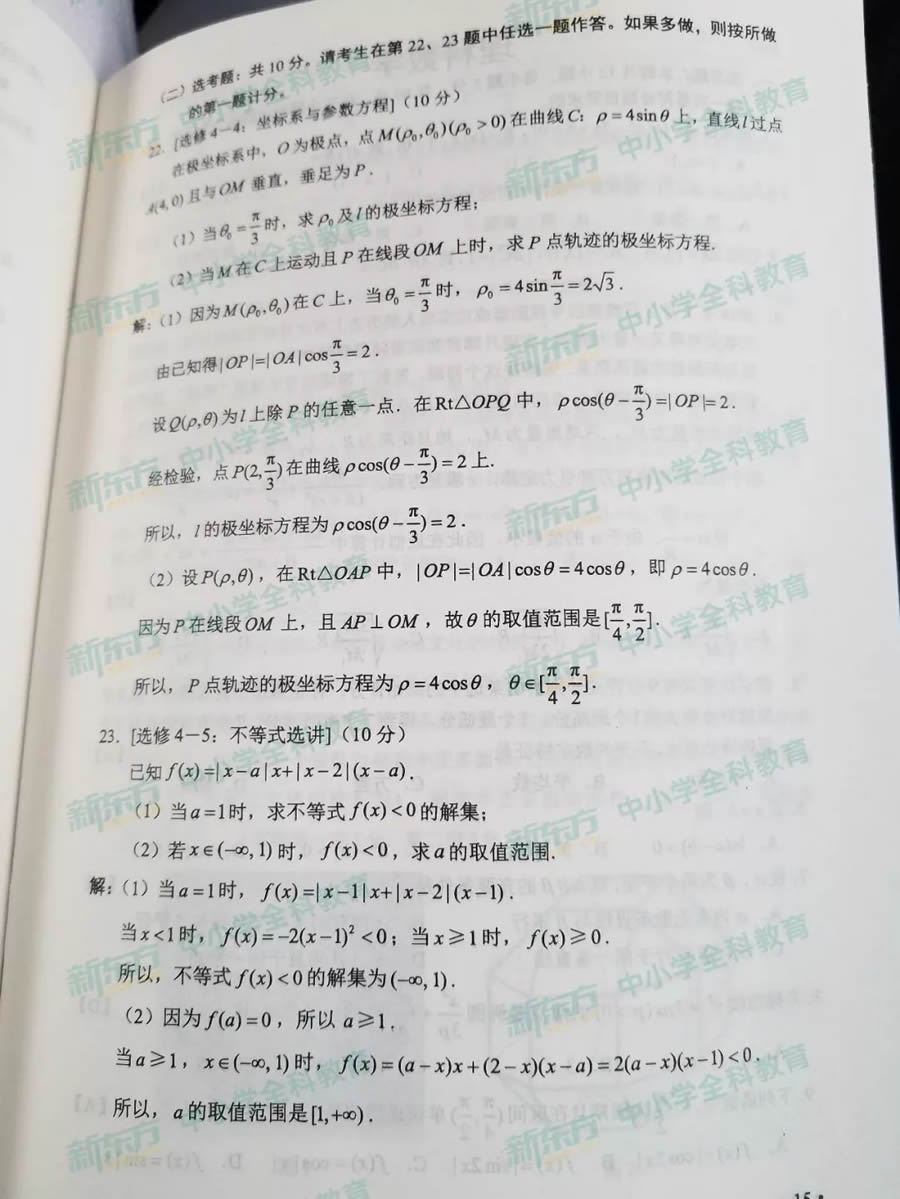 (二)选考题：共10分。请考生在第22、23题中任选一题作答。如果多做，则按所做
的第一题计分。
22. [选修4－4：坐标系与参数方程]（10分）
在极坐标系中，O为极点，点M(ρ₀,θ₀)(ρ₀>0)在曲线C：ρ=4sinθ上，直线l过点
A(4,0)且与OM垂直，垂足为P.
（1）当θ₀=π/3时，求ρ₀及l的极坐标方程；
（2）当M在C上运动且P在线段OM上时，求P点轨迹的极坐标方程.
解：（1）因为M(ρ₀,θ₀)在C上，当θ₀=π/3时，ρ₀=4sinπ/3=2√3.
由已知得|OP|=|OA|cosπ/3=2.
设Q(ρ,θ)为l上除P的任意一点. 在Rt△OPQ中，ρcos(θ-π/3)=|OP|=2.
经检验，点P(2,π/3)在曲线ρcos(θ-π/3)=2上.
所以，l的极坐标方程为ρcos(θ-π/3)=2.
（2）设P(ρ,θ)，在Rt△OAP中，|OP|=|OA|cosθ=4cosθ，即ρ=4cosθ.
因为P在线段OM上，且AP⊥OM，故θ的取值范围是[π/4,π/2].
所以，P点轨迹的极坐标方程为ρ=4cosθ，θ∈[π/4,π/2].
23. [选修4－5：不等式选讲]（10分）
已知f(x)=|x-a|x+|x-2|(x-a).
（1）当a=1时，求不等式f(x)<0的解集；
（2）若x∈(-∞,1)时，f(x)<0，求a的取值范围.
解：（1）当a=1时，f(x)=|x-1|x+|x-2|(x-1).
当x<1时，f(x)=-2(x-1)²<0；当x≥1时，f(x)≥0.
所以，不等式f(x)<0的解集为(-∞,1).
（2）因为f(a)=0，所以a≥1.
当a≥1，x∈(-∞,1)时，f(x)=(a-x)x+(2-x)(x-a)=2(a-x)(x-1)<0.
所以，a的取值范围是[1,+∞).
新东方 中小学全科教育